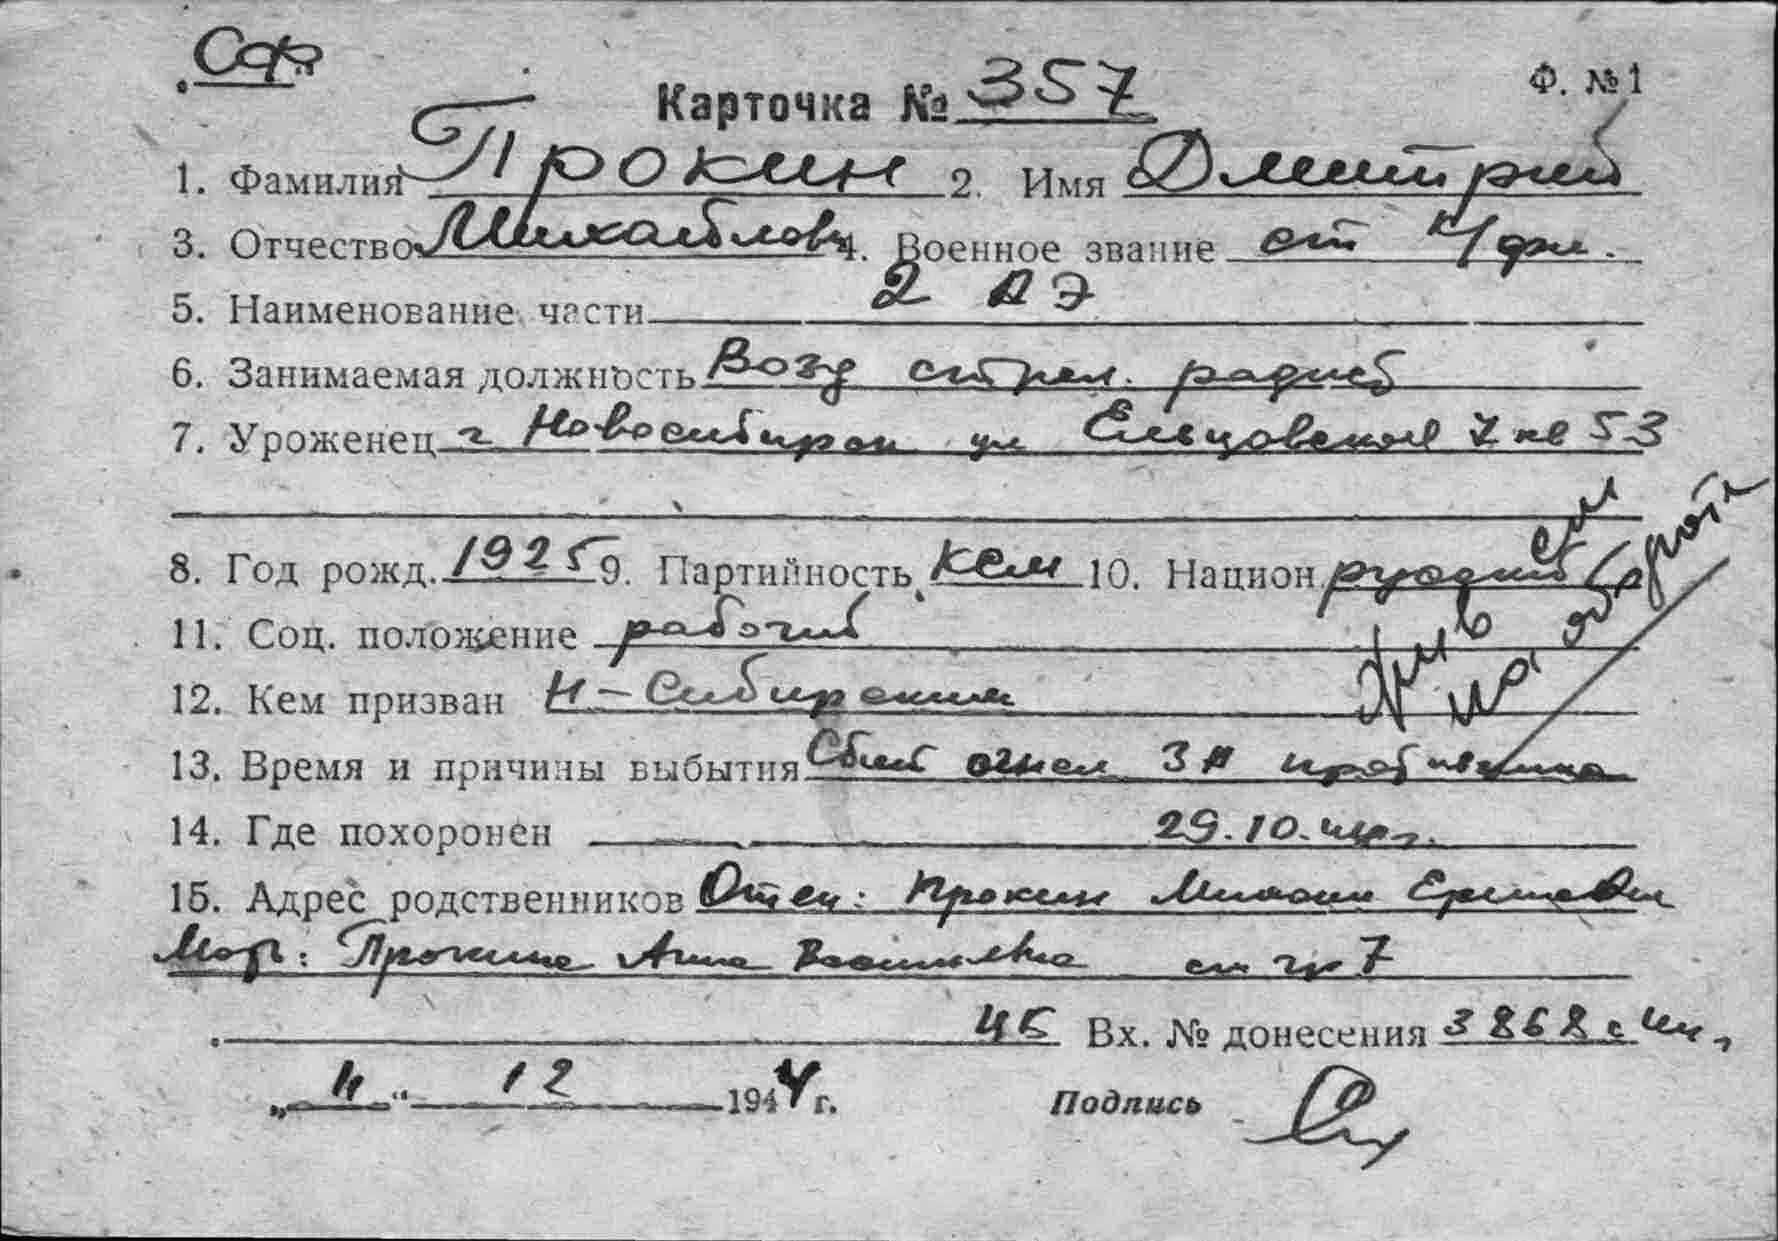 СФ
Ф. №1
Карточка № 357
1. Фамилия Прокин 2. Имя Дмитрий
3. Отчество Михайлов 4. Военное звание ст к/фл.
5. Наименование части 2 АЭ
6. Занимаемая должность Возд стрел. радист
7. Уроженец г Новосибирск ул Ельцовская 7 кв 53
8. Год рожд. 1925 9. Партийность 10. Национ русский
Жив см
на обороте
11. Соц. положение рабочий
12. Кем призван Н-Сибирским
13. Время и причины выбытия Сбит огнем ЗА противника
14. Где похоронен 29.10.44г.
15. Адрес родственников Отец: Прокин Михаил
Мать: Прокина Анна Васильевна см гр 7
Вх. № донесения 3868с
„11“ 12 1944 г. Подпись